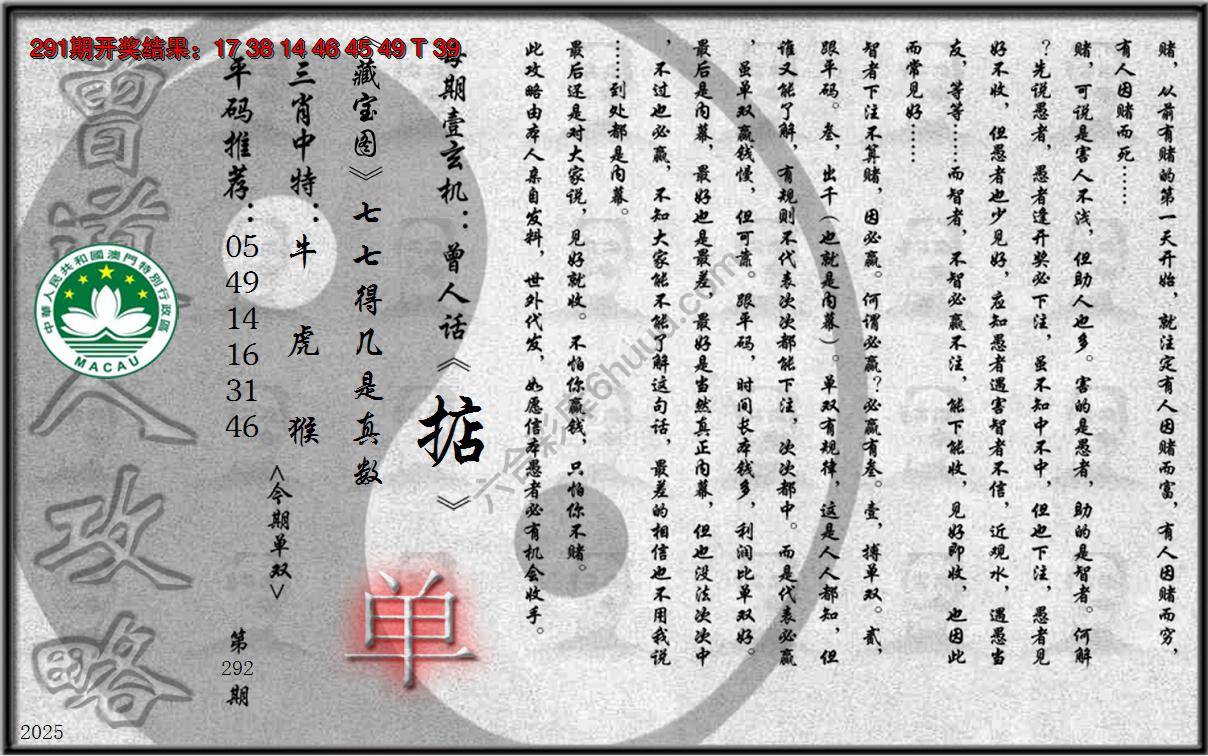 291期开奖结果：17 38 14 46 45 49 T 39
赌，从前有赌的第一天开始，就注定有人因赌而富，有人因赌而穷，
有人因赌而死……
赌，可说是害人不浅，但助人也多。害的是愚者，助的是智者。何解
？先说愚者，愚者逢开奖必下注，虽不知中不中，但也下注，愚者见
好不收，但愚者也少见好，应知愚者遇害智者不信，近观水，遇愚当
友，等等……而智者，不智必赢不注，能下能收，见好即收，也因此
而常见好……
智者下注不算赌，因必赢。何谓必赢？必赢有叁。壹，搏单双。贰，
跟平码。叁，出千（也就是内幕）。单双有规律，这是人人都知，但
谁又能了解，有规则不代表次次都能下注，次次都中。而是代表必赢
，虽单双赢钱慢，但可靠。跟平码，时间长本钱多，利润比单双好。
最后是内幕，最好也是最差，最好是当然真正内幕，但也没法次次中
，不过也必赢，不知大家能不能了解这句话，最差的相信也不用我说
……到处都是内幕。
最后还是对大家说，见好就收。不怕你赢钱，只怕你不赌。
此攻略由本人亲自发料，世外代发，如愿信本愚者必有机会收手。
每期壹玄机：曾人话《掂》
《藏宝图》七七得几是真数
三肖中特：牛 虎 猴
平码推荐：05 49 14 16 31 46
<今期单双>
单
第292期
曾道人攻略
中華人民共和國澳門特別行政區
MACAU
2025